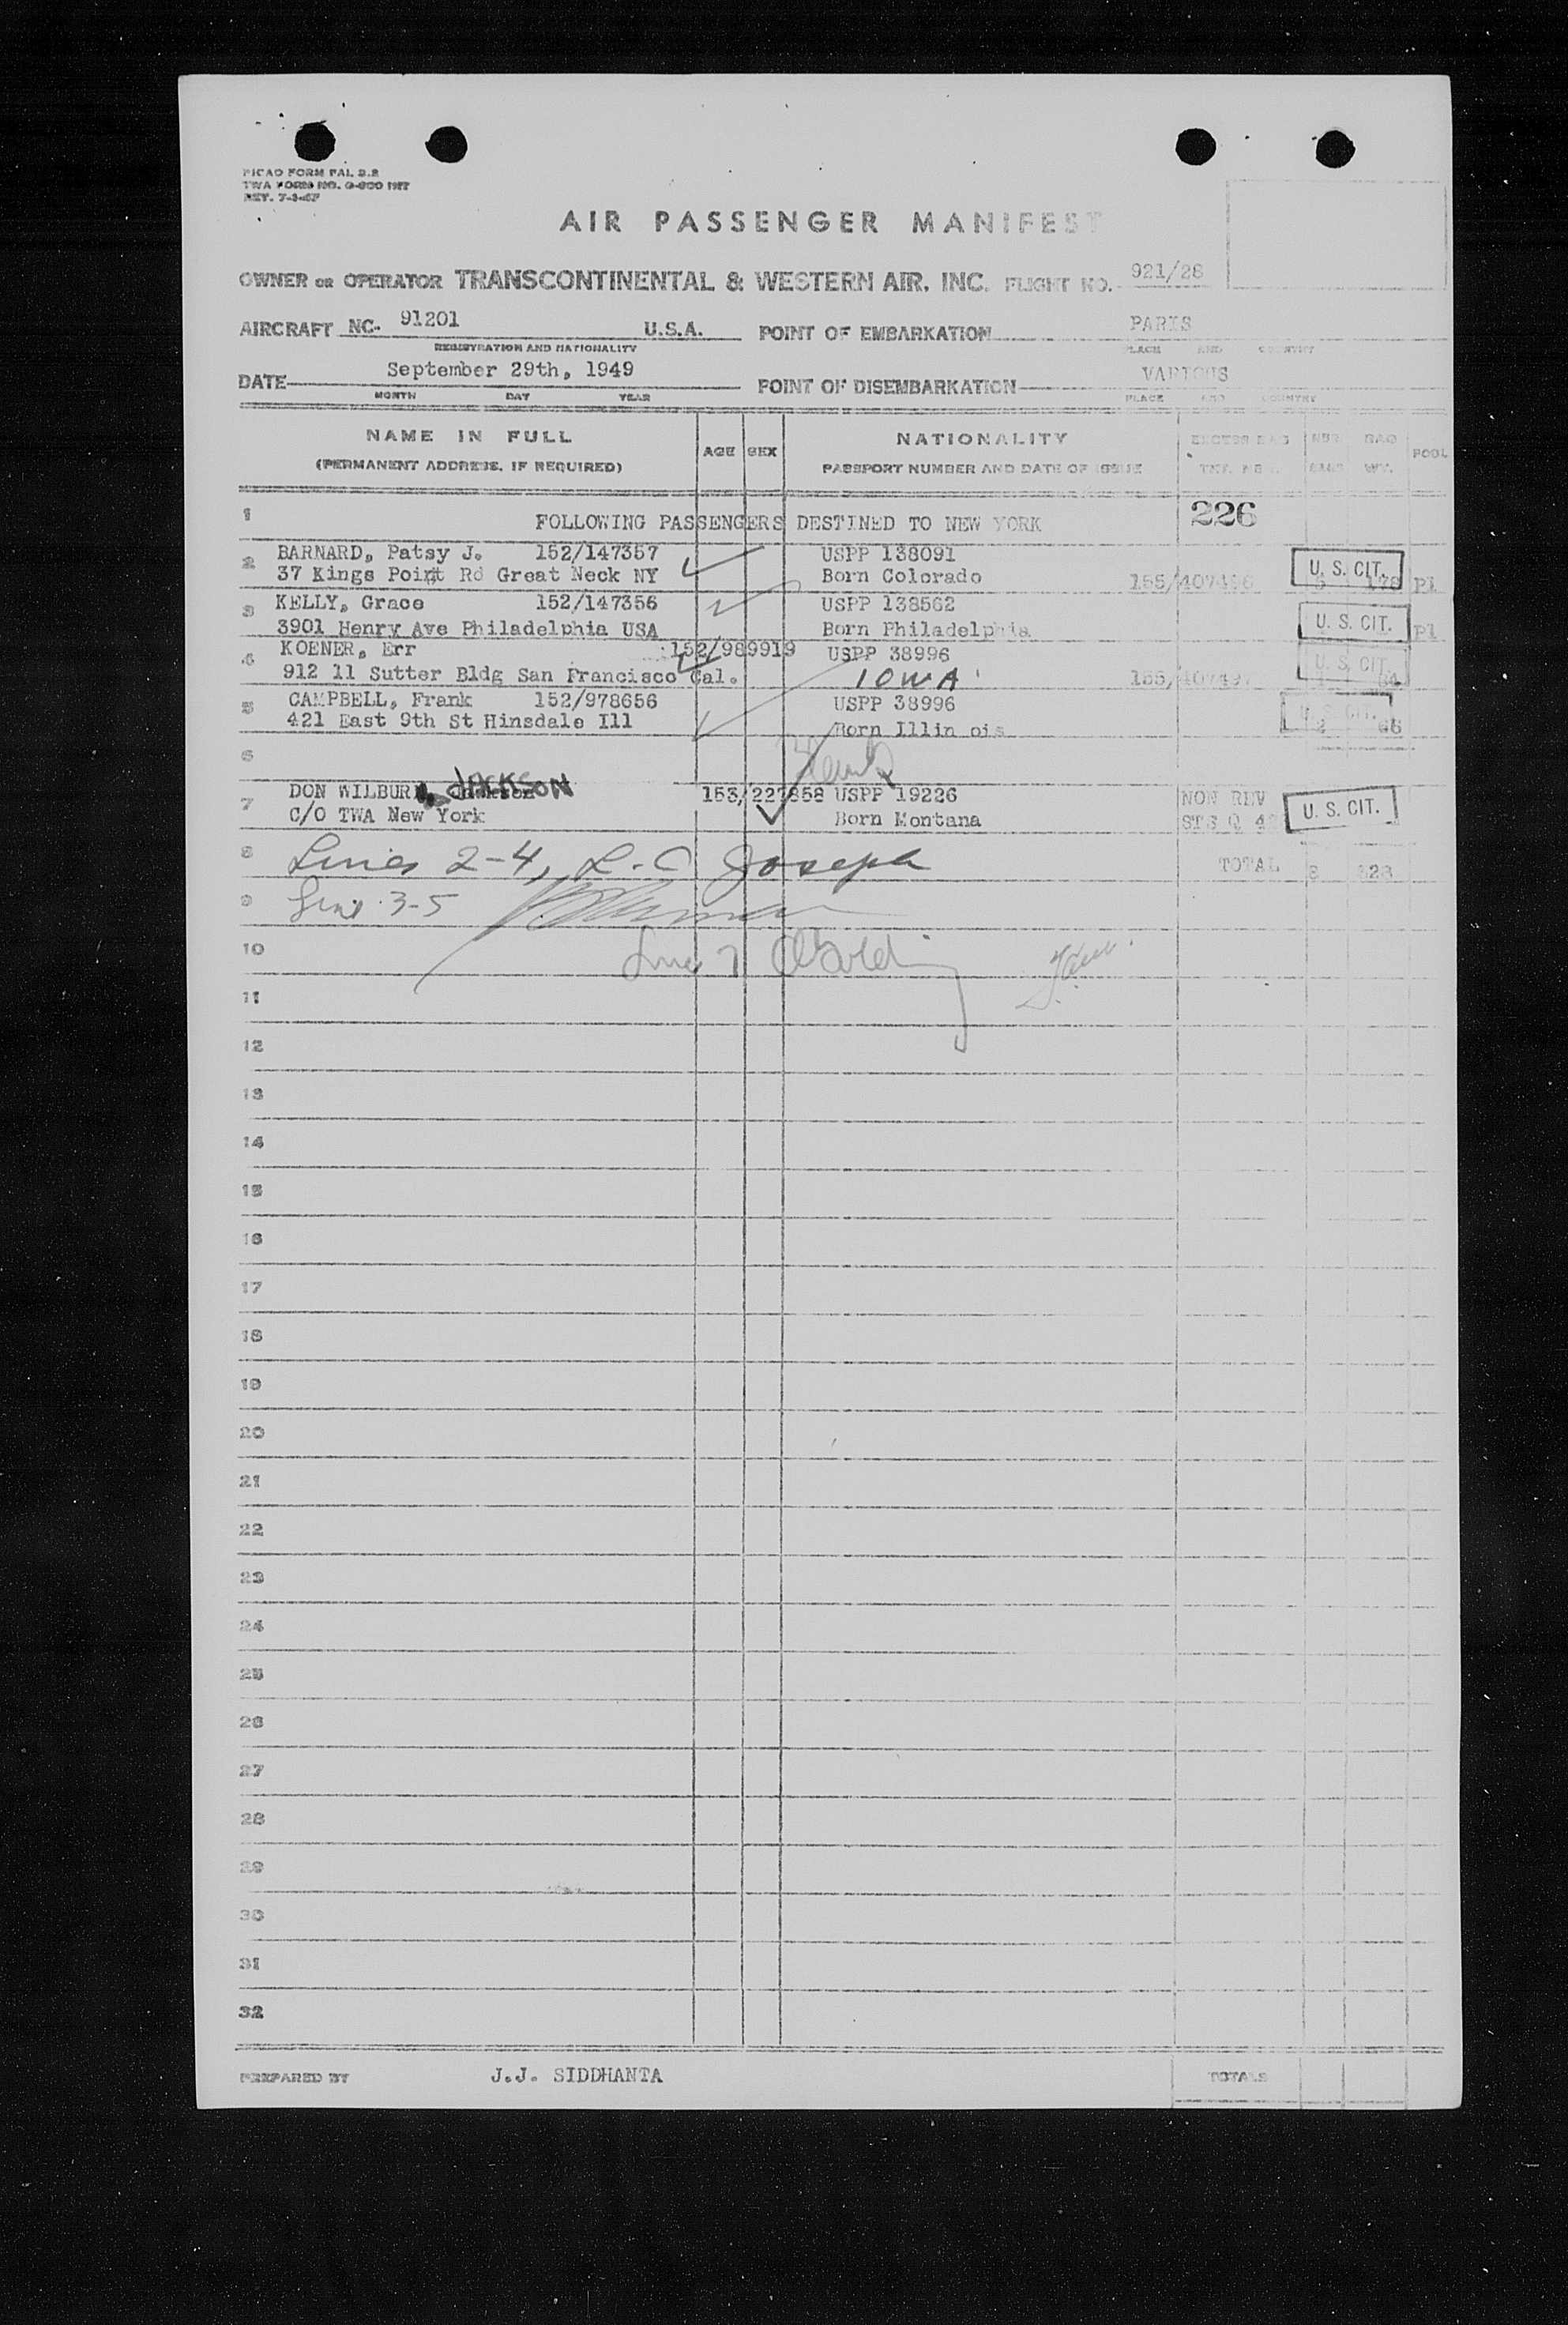 PICAO FORM PAI. 2.2
TWA FORM NO. O-800 INT
REV. 7-1-47
AIR PASSENGER MANIFEST
OWNER OR OPERATOR TRANSCONTINENTAL & WESTERN AIR, INC. FLIGHT NO. 921/28
AIRCRAFT NC- 91201 U.S.A. POINT OF EMBARKATION PARIS
REGISTRATION AND NATIONALITY PLACE AND COUNTRY
DATE September 29th, 1949 POINT OF DISEMBARKATION VARIOUS
MONTH DAY YEAR PLACE AND COUNTRY
NAME IN FULL AGE SEX NATIONALITY EXCESS BAG NBR BAG POOL
(PERMANENT ADDRESS, IF REQUIRED) PASSPORT NUMBER AND DATE OF ISSUE BAGS WT.
1 FOLLOWING PASSENGERS DESTINED TO NEW YORK 226
2 BARNARD, Patsy J. 152/147357 USPP 138091 U. S. CIT.
37 Kings Point Rd Great Neck NY Born Colorado 178 Pl
3 KELLY, Grace 152/147356 USPP 138562 U. S. CIT.
3901 Henry Ave Philadelphia USA Born Philadelphia Pl
4 KOENER, Err 152/989919 USPP 38996 U. S. CIT.
912 11 Sutter Bldg San Francisco Cal. IOWA 155/407497
5 CAMPBELL, Frank 152/978656 USPP 38996 U. S. CIT.
421 East 9th St Hinsdale Ill Born Illin ois 2 66
6
7 DON WILBUR JACKSON 153/227858 USPP 19226 NON REV U. S. CIT.
C/O TWA New York Born Montana
8 Lines 2-4, L.C Joseph TOTAL 8
9 Line 3-5
10 Line 7
11
12
13
14
15
16
17
18
19
20
21
22
23
24
25
26
27
28
29
30
31
32
PREPARED BY J.J. SIDDHANTA TOTALS